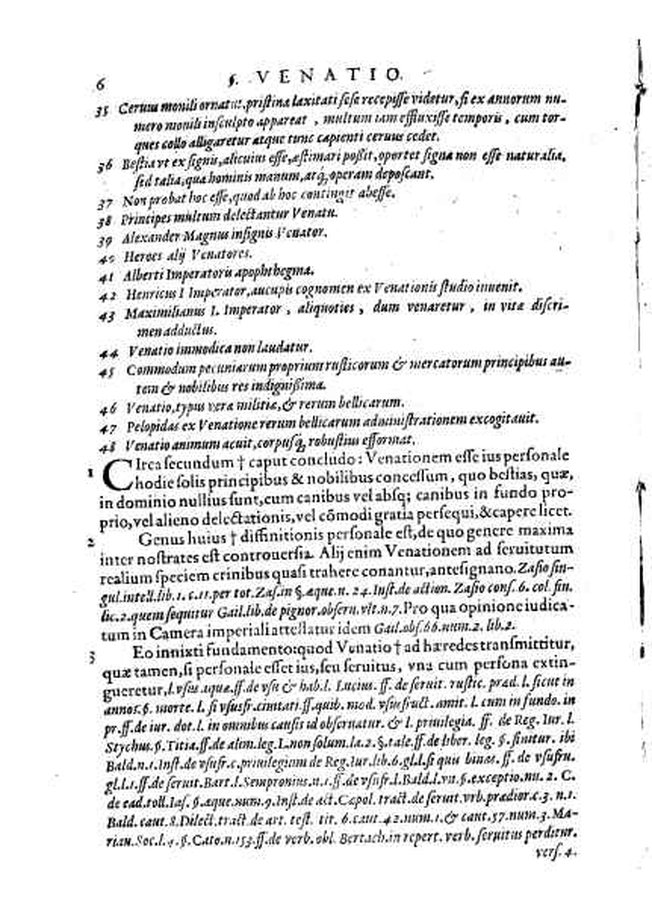 6 §. VENATIO.
35 Ceruus monili ornatus, pristina laxitati sese recepisse videtur, si ex annorum nu-
mero monili insculpto appareat, multum iam effluxisse temporis, cum tor-
ques collo alligaretur atque tunc capienti ceruus cedet.
36 Bestia vt ex signis, alicuius esse, æstimari possit, oportet signa non esse naturalia,
sed talia, qua hominis manum, atq; operam deposcant.
37 Non probat hoc esse, quod ab hoc contingit abesse.
38 Principes multum delectantur Venatu.
39 Alexander Magnus insignis Venator.
40 Heroes alij Venatores.
41 Alberti Imperatoris apophthegma.
42 Henricus I Imperator, aucupis cognomen ex Venationis studio inuenit.
43 Maximilianus I. Imperator, aliquoties, dum venaretur, in vitæ discri-
men adductus.
44 Venatio immodica non laudatur.
45 Commodum pecuniarum proprium rusticorum & mercatorum principibus au-
tem & nobilibus res indignissima.
46 Venatio, typus veræ militiæ, & rerum bellicarum.
47 Pelopidas ex Venatione rerum bellicarum administrationem excogitauit.
48 Venatio animum acuit, corpusq; robustius efformat.
1 CIrca secundum † caput concludo: Venationem esse ius personale
hodie solis principibus & nobilibus concessum, quo bestias, quæ,
in dominio nullius sunt, cum canibus vel absq; canibus in fundo pro-
prio, vel alieno delectationis, vel cõmodi gratia persequi, & capere licet.
2 Genus huius † diffinitionis personale est, de quo genere maxima
inter nostrates est controuersia. Alij enim Venationem ad seruitutum
realium speciem crinibus quasi trahere conantur, antesignano. Zasio sin-
gul. intell. lib. 1. c. 11. per tot. Zas. in §. æque. n. 24. Inst. de action. Zasio cons. 6. col. fin.
lic. 2. quem sequitur Gail. lib. de pignor. obseru. vlt. n. 7. Pro qua opinione iudica-
tum in Camera imperiali attestatur idem Gail. obs. 66. num. 2. lib. 2.
3 Eo innixti fundamento: quod Venatio † ad hæredes transmittitur,
quæ tamen, si personale esset ius, seu seruitus, vna cum persona extin-
gueretur, l. vsus. aquæ. ff. de vsu & hab. l. Lucius. ff. de seruit. rustic. præd. l. sicut in
annos. §. morte. l. si vsusfr. ciuitati. ff. quib. mod. vsusfruct. amit. l. cum in fundo. in
pr. ff. de iur. dot. l. in omnibus causis id obseruatur. & l. priuilegia. ff. de Reg. Iur. l.
Stychus. §. Titia. ff. de alim. leg. l. non solum. la. 2. §. tale. ff. de liber. leg. §. finitur. ibi
Bald. n. 1. Inst. de vsufr. c. priuilegium de Reg. Iur. lib. 6. gl. l. si quis binas. ff. de vsufru.
gl. l. 1. ff. de seruit. Bart. l. Sempronius. n. 1. ff. de vsufr. l. Bald. l. vn. §. exceptio. nu. 2. C.
de cad. toll. Ias. §. æque. num. 9. Inst. de act. Cæpol. tract. de seruit. vrb. prædior. c. 3. n. 1.
Bald. caut. 8. Dilect. tract. de art. test. tit. 6. caut. 42. num. 1. & caut. 57. num. 3. Ma-
rian. Soc. l. 4. §. Cato. n. 153. ff. de verb. obl. Bertach. in repert. verb. seruitus perditur.
vers. 4.